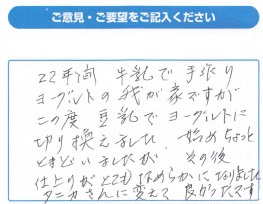 ご意見・ご要望をご記入ください
22年間 牛乳で 手作り
ヨーグルトの 我が家ですが
この度 豆乳で ヨーグルトに
切り換えました。始めちょっと
とまどいましたが その後
仕上りがとても 滑らかになりました
タニカさんに変えて 良かったです